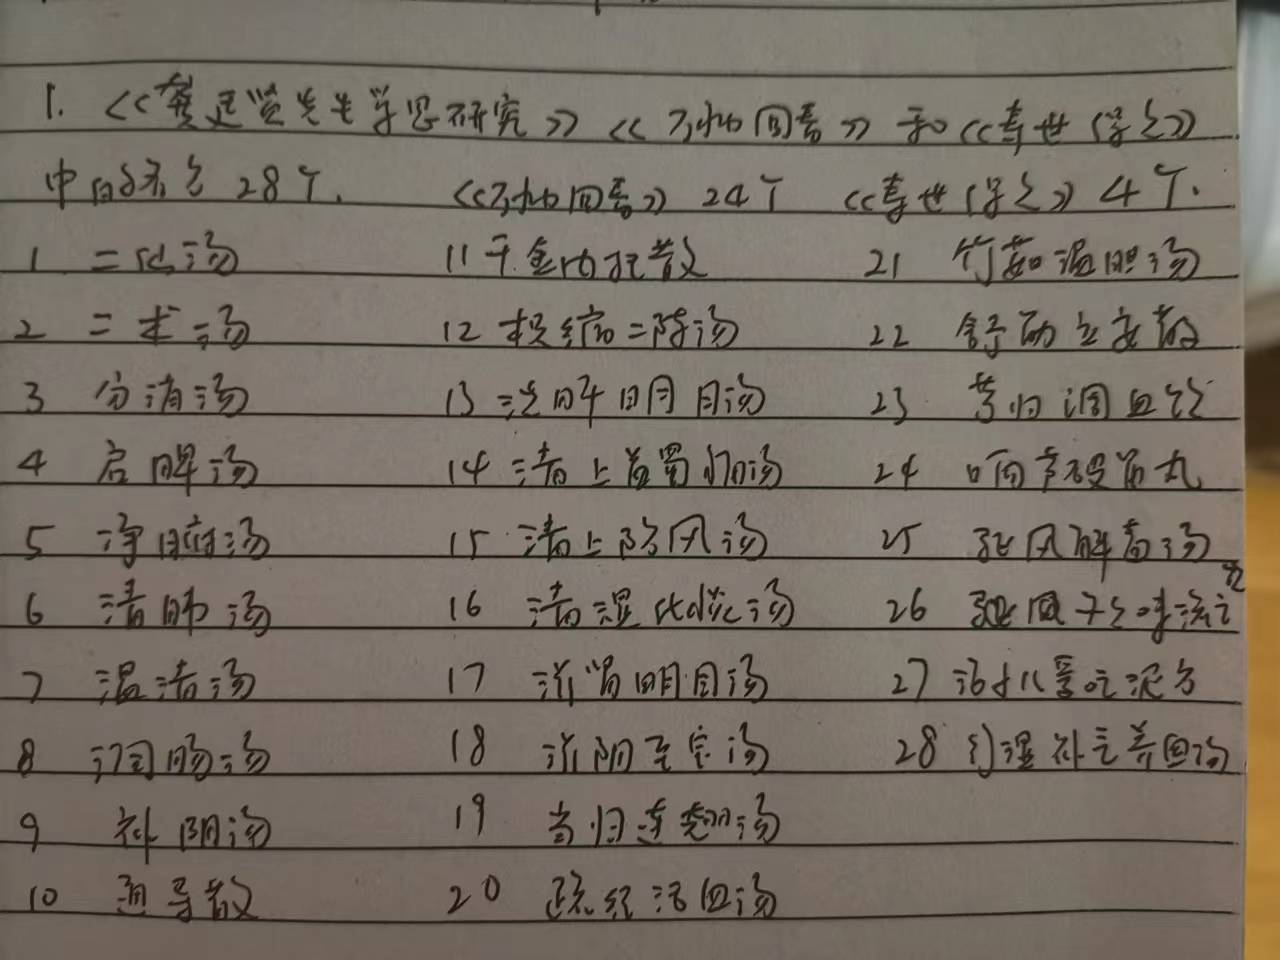 1. 《龚廷贤先生学思研究》《万病回春》和《寿世保元》
中的方 28个. 《万病回春》24个 《寿世保元》4个.
1 二 汤 11 千金内托散 21 竹茹温胆汤
2 二术汤 12 枳缩二陈汤 22 舒筋立安散
3 分消汤 13 洗肝明目汤 23 芎归调血饮
4 启脾汤 14 清上蠲痛汤 24 响声破笛丸
5 净府汤 15 清上防风汤 25 驱风解毒汤
6 清肺汤 16 清湿化痰汤 26 驱风
7 温清汤 17 滋肾明目汤 27 治小儿 吃泥方
8 润肠汤 18 滋阴至宝汤 28 补气养血汤
9 补阴汤 19 当归连翘汤
10 通导散 20 疏经活血汤